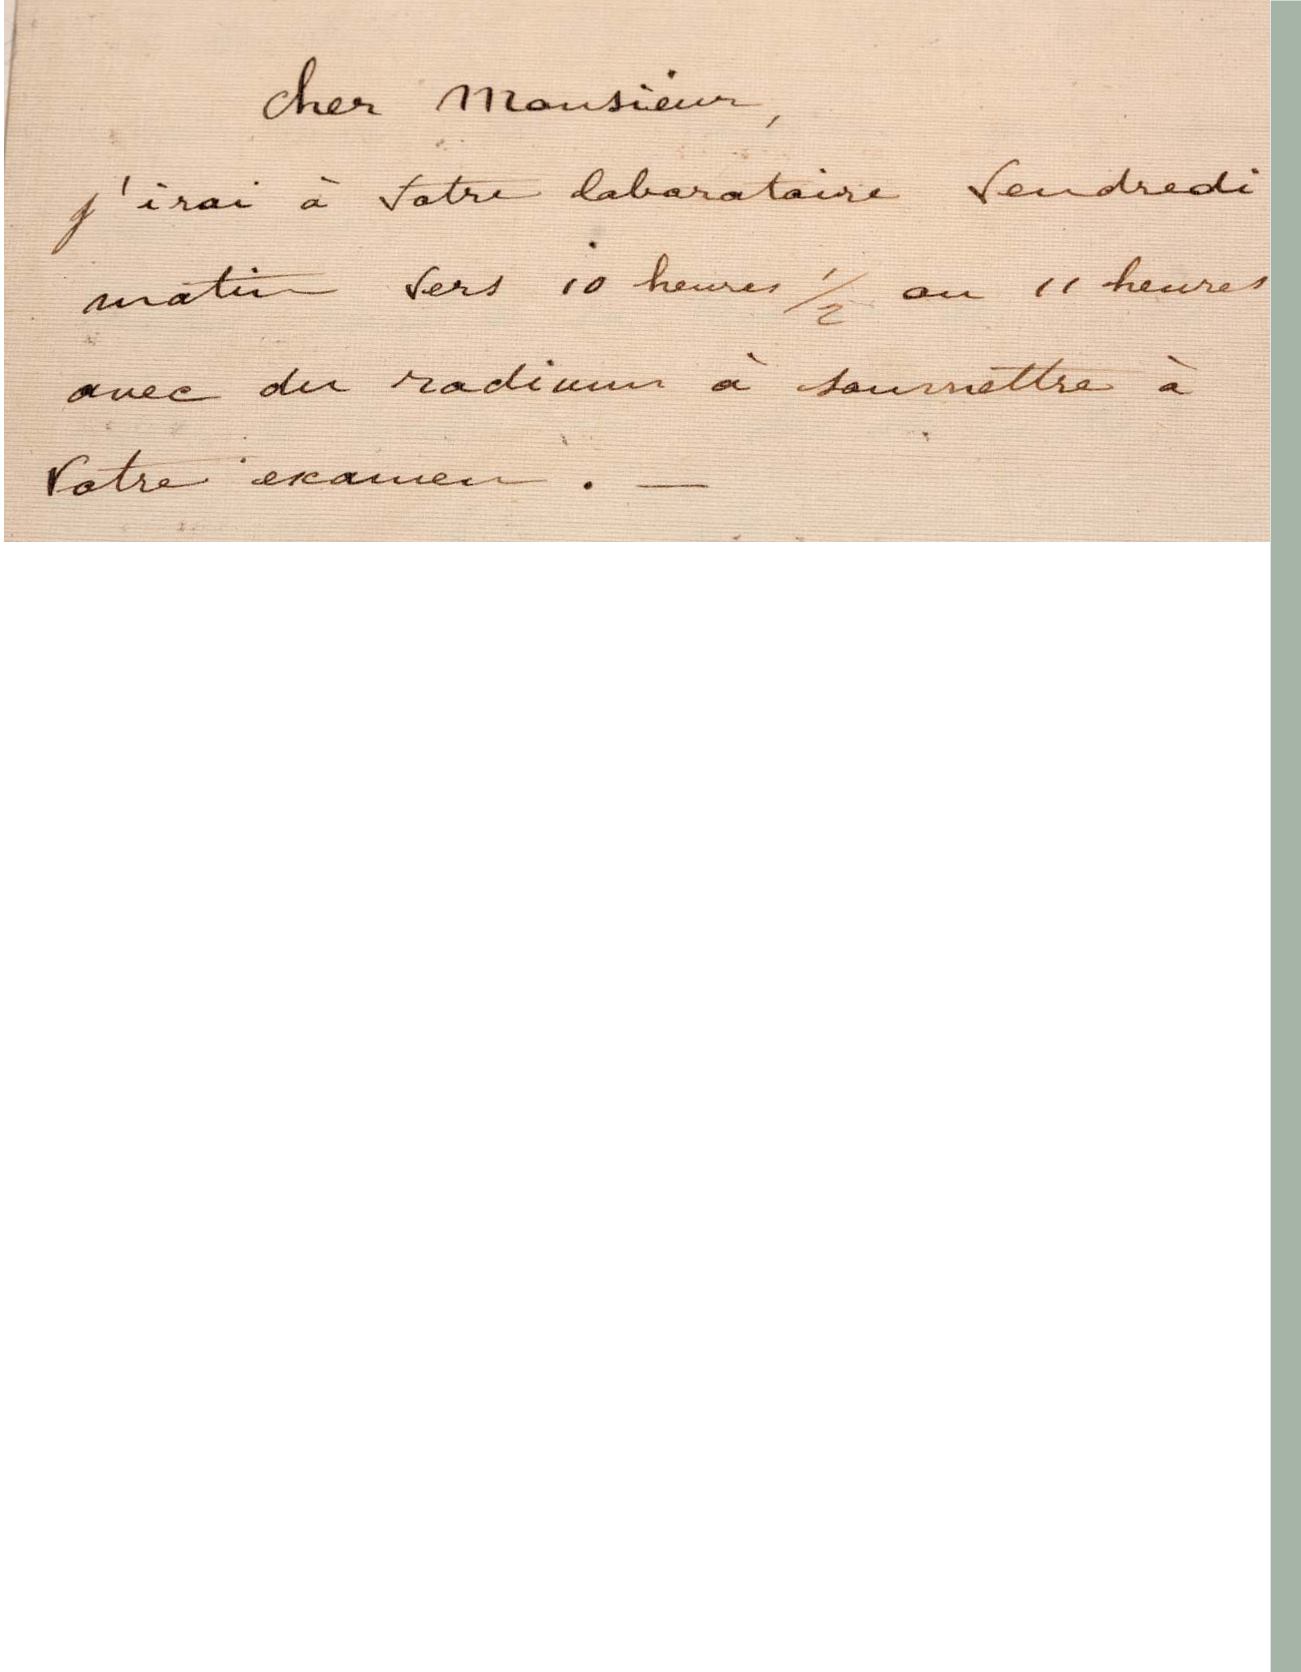 Cher Monsieur,
j'irai à votre laboratoire Vendredi
matin vers 10 heures 1/2 ou 11 heures
avec du radium à soumettre à
votre examen. —